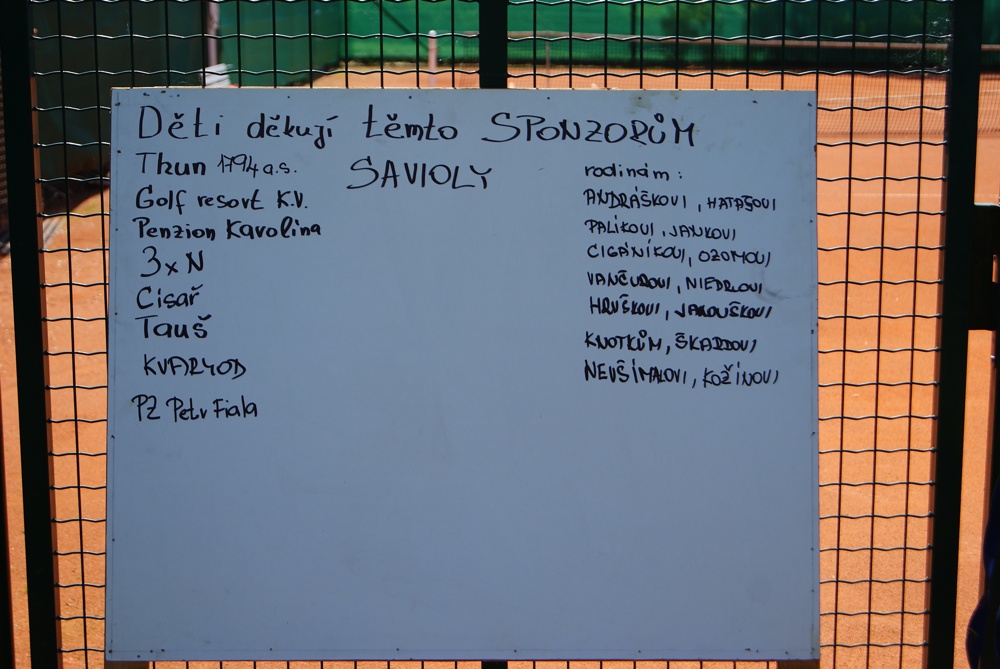 Děti děkují těmto SPONZORŮM
Thun 1794 a.s.
Golf resort K.V.
Penzion Karolina
3xN
Cisař
Tauš
KVARYOD
PZ Petr Fiala
SAVIOLY
rodinám:
ANDRÁŠKOVI, HATAŠOVI
PALÍKOVI, JANKOVI
CIGÁNÍKOVI, OZOMOVI
VANČUROVI, NIEDRLOVI
HRUŠKOVI, JAROUŠKOVI
KNOTKŮM, ŠKARDOVI
NEVŠÍMALOVI, KOŽÍNOVI